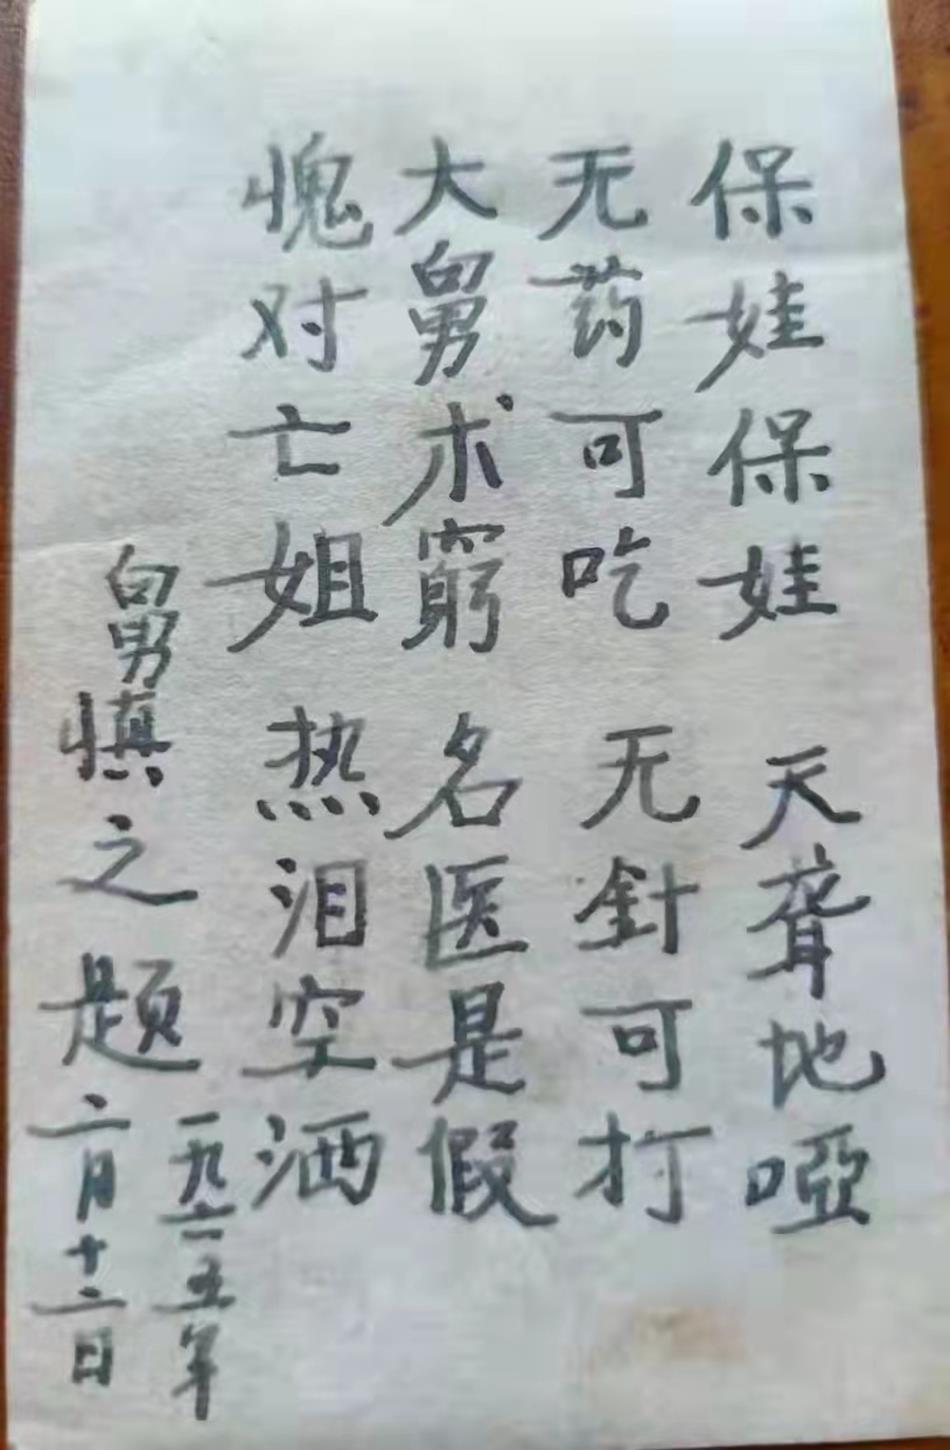 保娃保娃 天聋地哑
无药可吃 无針可打
大舅术窮 名医是假
愧对亡姐 热泪空洒
舅慎之题
一九六五年
二月十二日